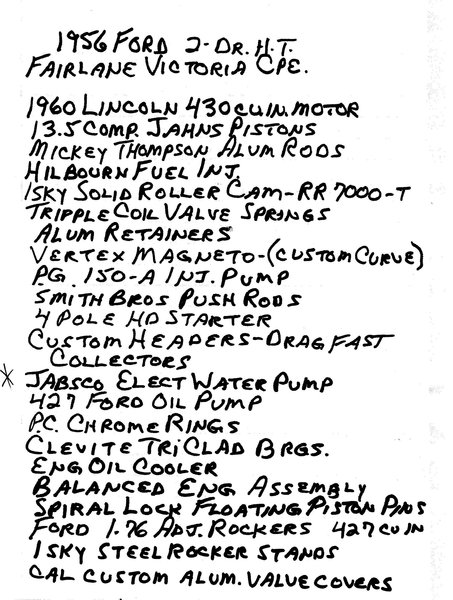 1956 FORD 2-DR. H.T.
FAIRLANE VICTORIA CPE.
1960 LINCOLN 430 CU.IN. MOTOR
13.5 COMP. JAHNS PISTONS
MICKEY THOMPSON ALUM RODS
HILBOURN FUEL INJ.
ISKY SOLID ROLLER CAM-RR 7000-T
TRIPPLE COIL VALVE SPRINGS
ALUM RETAINERS
VERTEX MAGNETO-(CUSTOM CURVE)
P.G. 150-A INJ. PUMP
SMITH BROS PUSH RODS
4 POLE HD STARTER
CUSTOM HEADERS-DRAG FAST
COLLECTORS
* JABSCO ELECT WATER PUMP
427 FORD OIL PUMP
P.C. CHROME RINGS
CLEVITE TRI CLAD BRGS.
ENG OIL COOLER
BALANCED ENG ASSEMBLY
SPIRAL LOCK FLOATING PISTON PINS
FORD 1.76 ADJ. ROCKERS 427 CU IN
ISKY STEEL ROCKER STANDS
CAL CUSTOM ALUM. VALVE COVERS